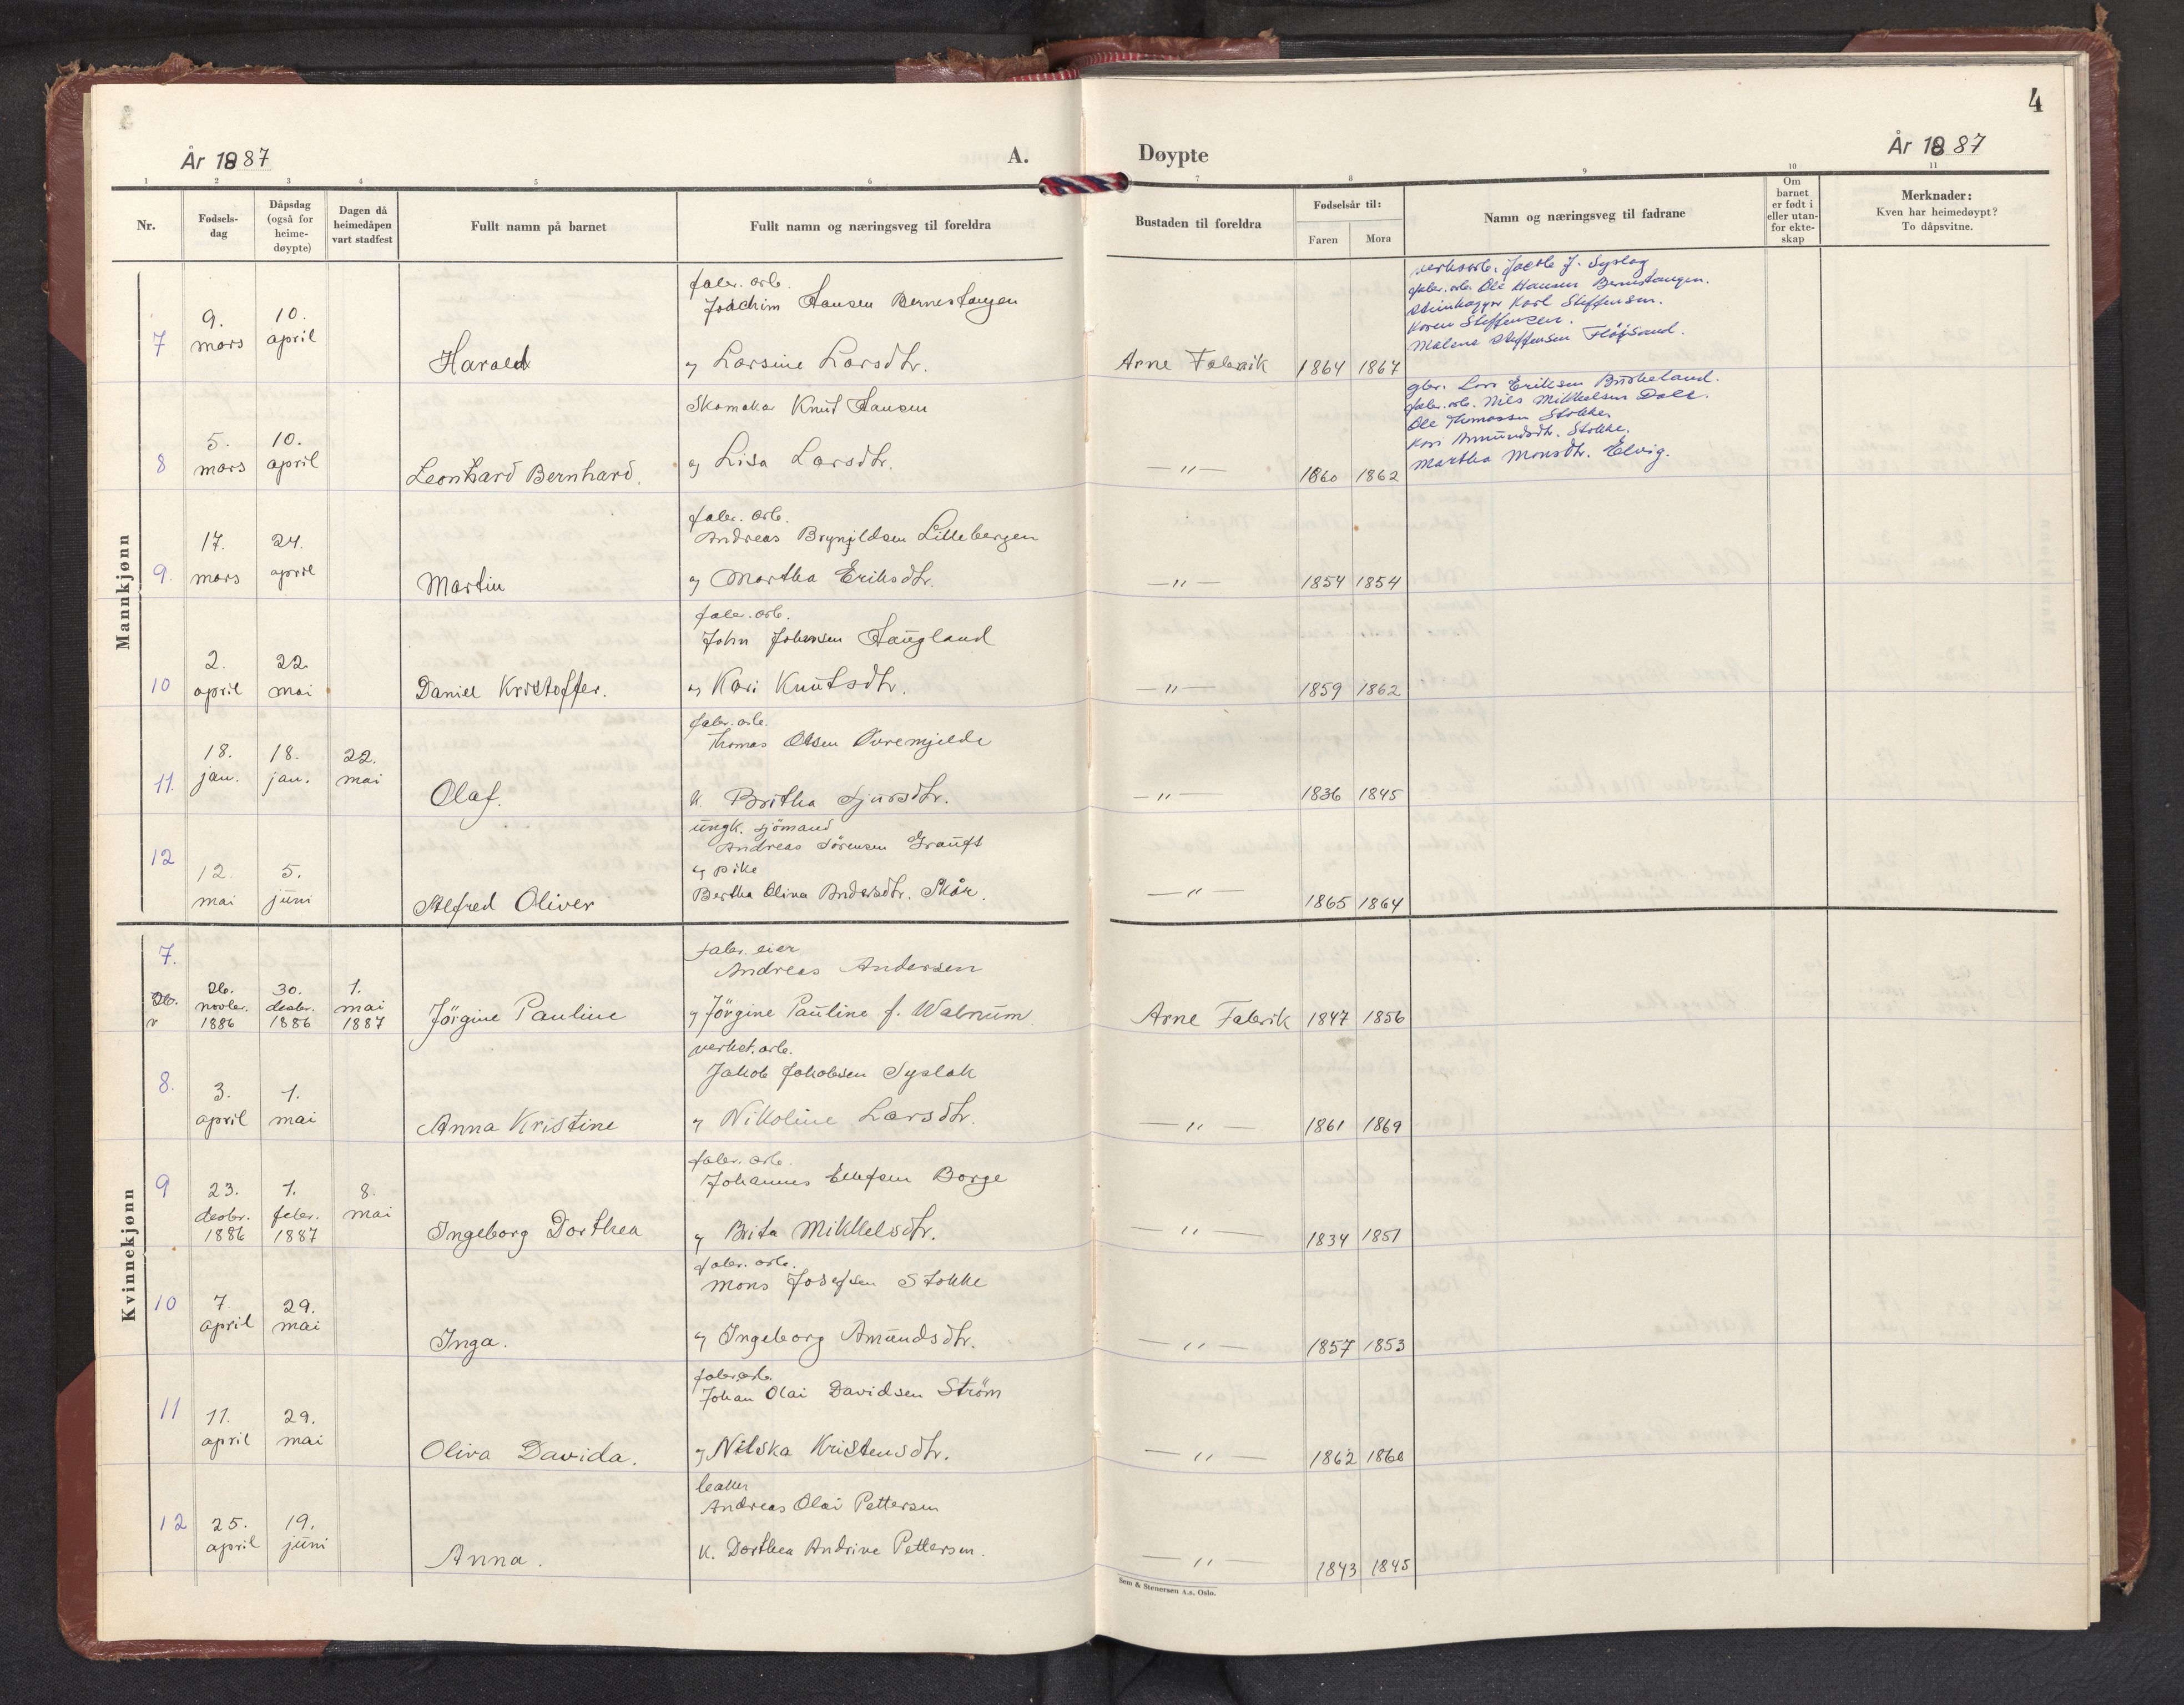 4
År 1887
A.
Døypte
År 1887
1 2 3 4 5 6 7 8 9 10 11
Nr.
Fødsels-
dag
Dåpsdag
(også for
heime-
døypte)
Dagen då
heimedåpen
vart stadfest
Fullt namn på barnet
Fullt namn og næringsveg til foreldra
Bustaden til foreldra
Fødselsår til:
Faren Mora
Namn og næringsveg til fadrane
Om
barnet
er født i
eller utan-
for ekte-
skap
Merknader:
Kven har heimedøypt?
To dåpsvitne.
Mannkjønn
7
9.
mars
10.
april
Harald
fabr. arb.
Joachim Hansen Bernestangen
og Larsine Larsdtr.
Arne Fabrik 1864 1867
verksarb. Jacob J. Syslag
fabr. arb. Ole Hansen Bernstangen.
steinhogger Karl Steffensen.
Karen Steffensen.
Malene Steffensen Fløjsand.
8
5.
mars
10.
april
Leonhard Bernhard.
Skomakar Knut Hansen
og Lisa Larsdtr.
— " — 1860 1862
gbr. Lars Eriksen Birkeland.
fabr. arb. Nils Mikkelsen Dale.
Ole Thomassen Stokke
Kari Amundsdtr. Stokke.
Martha Monsdtr. Elvig.
9.
17.
mars
24.
april
Martin
fabr. arb.
Andreas Brynjildsen Lillebergen
og Martha Eriksdtr.
— " — 1854 1854
10
2.
april
22.
mai
Daniel Kristoffer.
fabr. arb.
John Johnsen Haugland
og Kari Knutsdtr.
— " — 1859 1862
11.
18.
jan.
18.
jan.
22.
mai
Olaf.
fabr. arb.
Thomas Olsen Øvremjelde
K. Britha Sjursdtr.
— " — 1836 1845
12
12.
mai
5.
juni
Alfred Oliver
ungk. sjömand
Andreas Sörensen
og pike
Bertha Olina Andersdtr. Skår.
— " — 1865 1864
Kvinnekjønn
7.
26.
novbr.
1886
30.
desbr.
1886
1.
mai
1887
Jörgine Pauline
fabr. eier
Andreas Andersen
og Jörgine Pauline f. Walnum
Arne Fabrik 1847 1856
8.
3.
april
1.
mai
Anna Kristine
verkst. arb.
Jakob Jakobsen Syslak
og Nikoline Larsdtr.
— " — 1861 1869
9
23.
desbr.
1886
1.
febr.
1887
8.
mai
Ingeborg Dorthea
fabr. arb.
Johannes Ellefsen Borge
og Brita Mikkelsdtr.
— " — 1834 1851
10
7.
april
29.
mai
Inga.
fabr. arb.
Mons Josefsen Stokke
og Ingeborg Amundsdtr.
— " — 1857 1853
11
11.
april
29.
mai
Oliva Davida.
fabr. arb.
Johan Olai Davidsen Ström
og Nilska Kristensdtr.
— " — 1862 1860
12
25.
april
19.
juni
Anna.
Andreas Olai Pettersen
K. Dorthea Andrine Pettersen.
— " — 1843 1845
Sem & Stenersen A.s. Oslo.